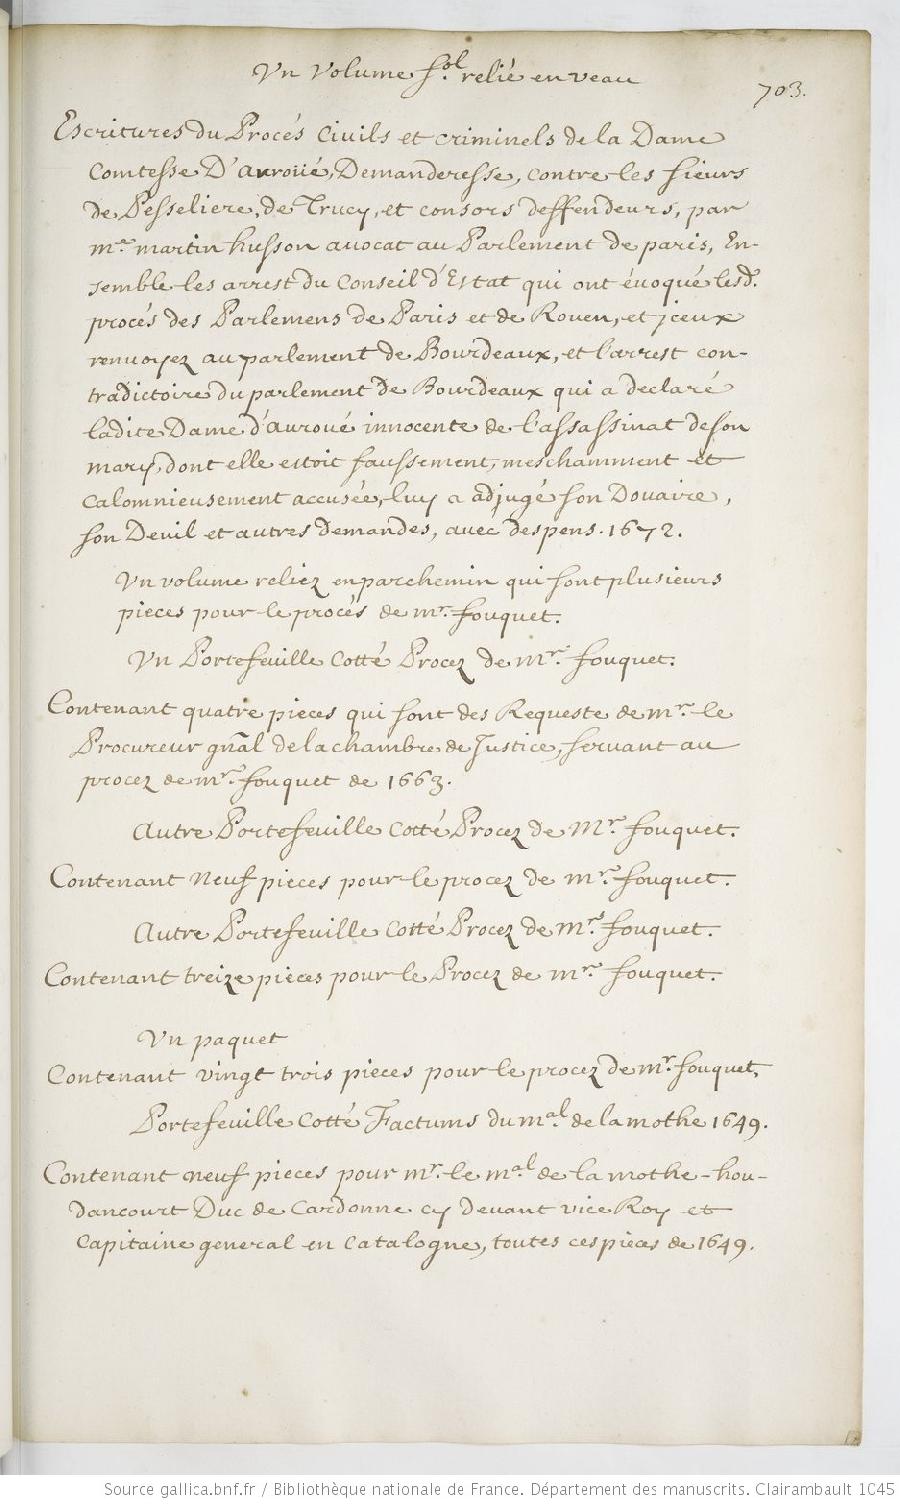 Vn Volume fol. relié en veau
703.
Escritures du Procés Civils et criminels de la Dame
Comtesse D'auroüé, Demanderesse, contre les sieurs
de Pesseliere, de Trucy, et consors deffendeurs, par
me. martin husson avocat au Parlement de paris, En-
semble les arrest du Conseil d'Estat qui ont évoqué lesd.
procés des Parlemens de Paris et de Rouen, et jceux
renuoyez au parlement de Bourdeaux, et l'arrest con-
tradictoire du parlement de Bourdeaux qui a declaré
ladite Dame d'auroué innocente de l'assassinat de son
mary, dont elle estoit faussement, meschamment et
calomnieusement accusée, luy a adjugé son Douaire,
son Deuil et autres demandes, avec despens. 1672.
Vn volume reliez en parchemin qui sont plusieurs
pieces pour le procés de mr. fouquet.
Vn Portefeuille Cotté Procez de mr. fouquet.
Contenant quatre pieces qui sont des Requeste de mr. le
Procureur gñal de la chambre de Justice, servant au
procez de mr. fouquet de 1663.
Autre Portefeuille Cotté Procez de Mr. fouquet.
Contenant neuf pieces pour le procez de mr. fouquet.
Autre Portefeuille Cotté Procez de mr. fouquet.
Contenant treize pieces pour le Procez de mr. fouquet.
Vn paquet
Contenant vingt trois pieces pour le procez de mr. fouquet,
Portefeuille Cotté Factums du mal. de la mothe 1649.
Contenant neuf pieces pour mr. le mal. de la mothe-hou-
dancourt Duc de Cardonne cy devant vice Roy et
Capitaine general en Catalogne, toutes ces pieces de 1649.
Source gallica.bnf.fr / Bibliothèque nationale de France. Département des manuscrits. Clairambault 1045